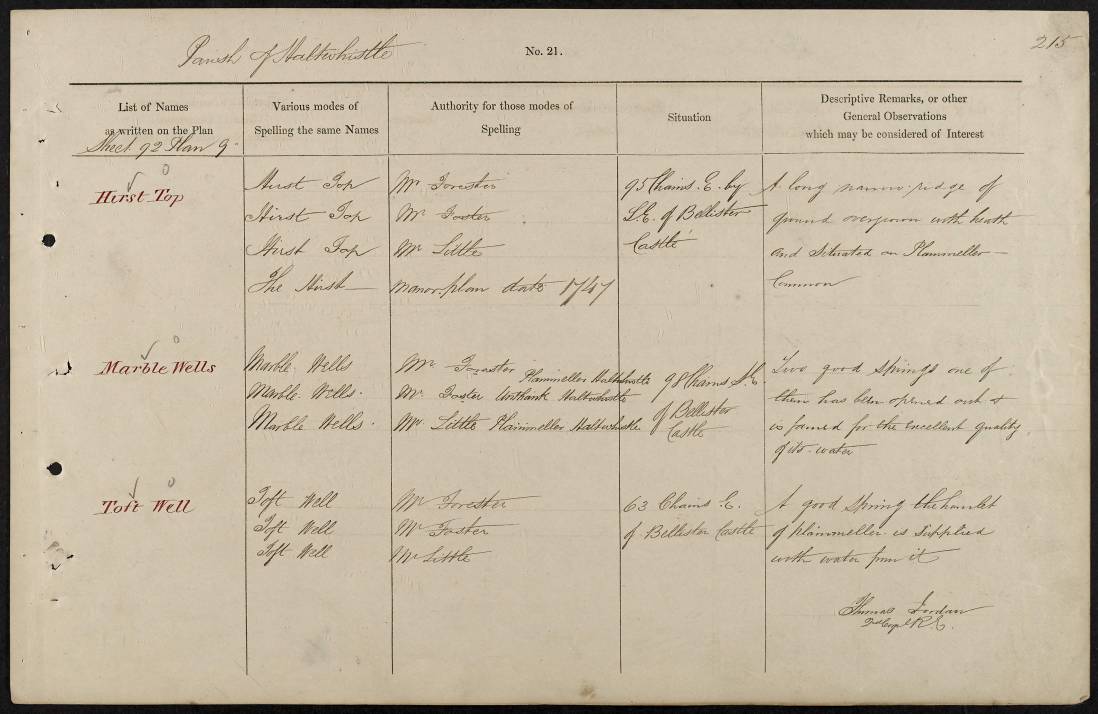 215
Parish of Haltwhistle
No. 21.
List of Names
as written on the Plan
Various modes of
Spelling the same Names
Authority for those modes of
Spelling
Situation
Descriptive Remarks, or other
General Observations
which may be considered of Interest
Sheet 92 Plan 9
Hirst Top
Hirst Top
Hirst Top
Hirst Top
The Hirst
Mr. Forester
Mr. Foster
Mr. Little
Manor plan date 1747
95 Chains E. by
S.E. of Bellister
Castle
A long narrow ridge of
ground overgrown with heath
and Situated on Plainmeller
Common
Marble Wells
Marble Wells
Marble Wells
Marble Wells
Mr. Forester Plainmeller Haltwhistle
Mr. Foster Unthank Haltwhistle
Mr. Little Plainmeller Haltwhistle
98 Chains S.E.
of Bellister
Castle
Two good Springs one of
them has been opened out &
is famed for the excellent quality
of its water
Toft Well
Toft Well
Toft Well
Toft Well
Mr. Forester
Mr. Foster
Mr. Little
63 Chains E.
of Bellister Castle
A good Spring the hamlet
of Plainmeller is Supplied
with water from it
Thomas Jordan
2nd Corpl. R.E.